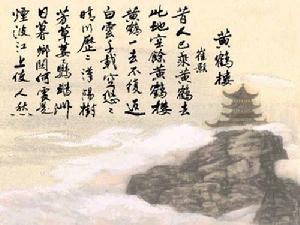 黄鶴樓
崔顥
昔人已乘黄鶴去
此地空餘黄鶴樓
黄鶴一去不復返
白雲千載空悠々
晴川歷々漢陽樹
芳草萋々鸚鵡洲
日暮鄉關何處是
煙波江上使人愁